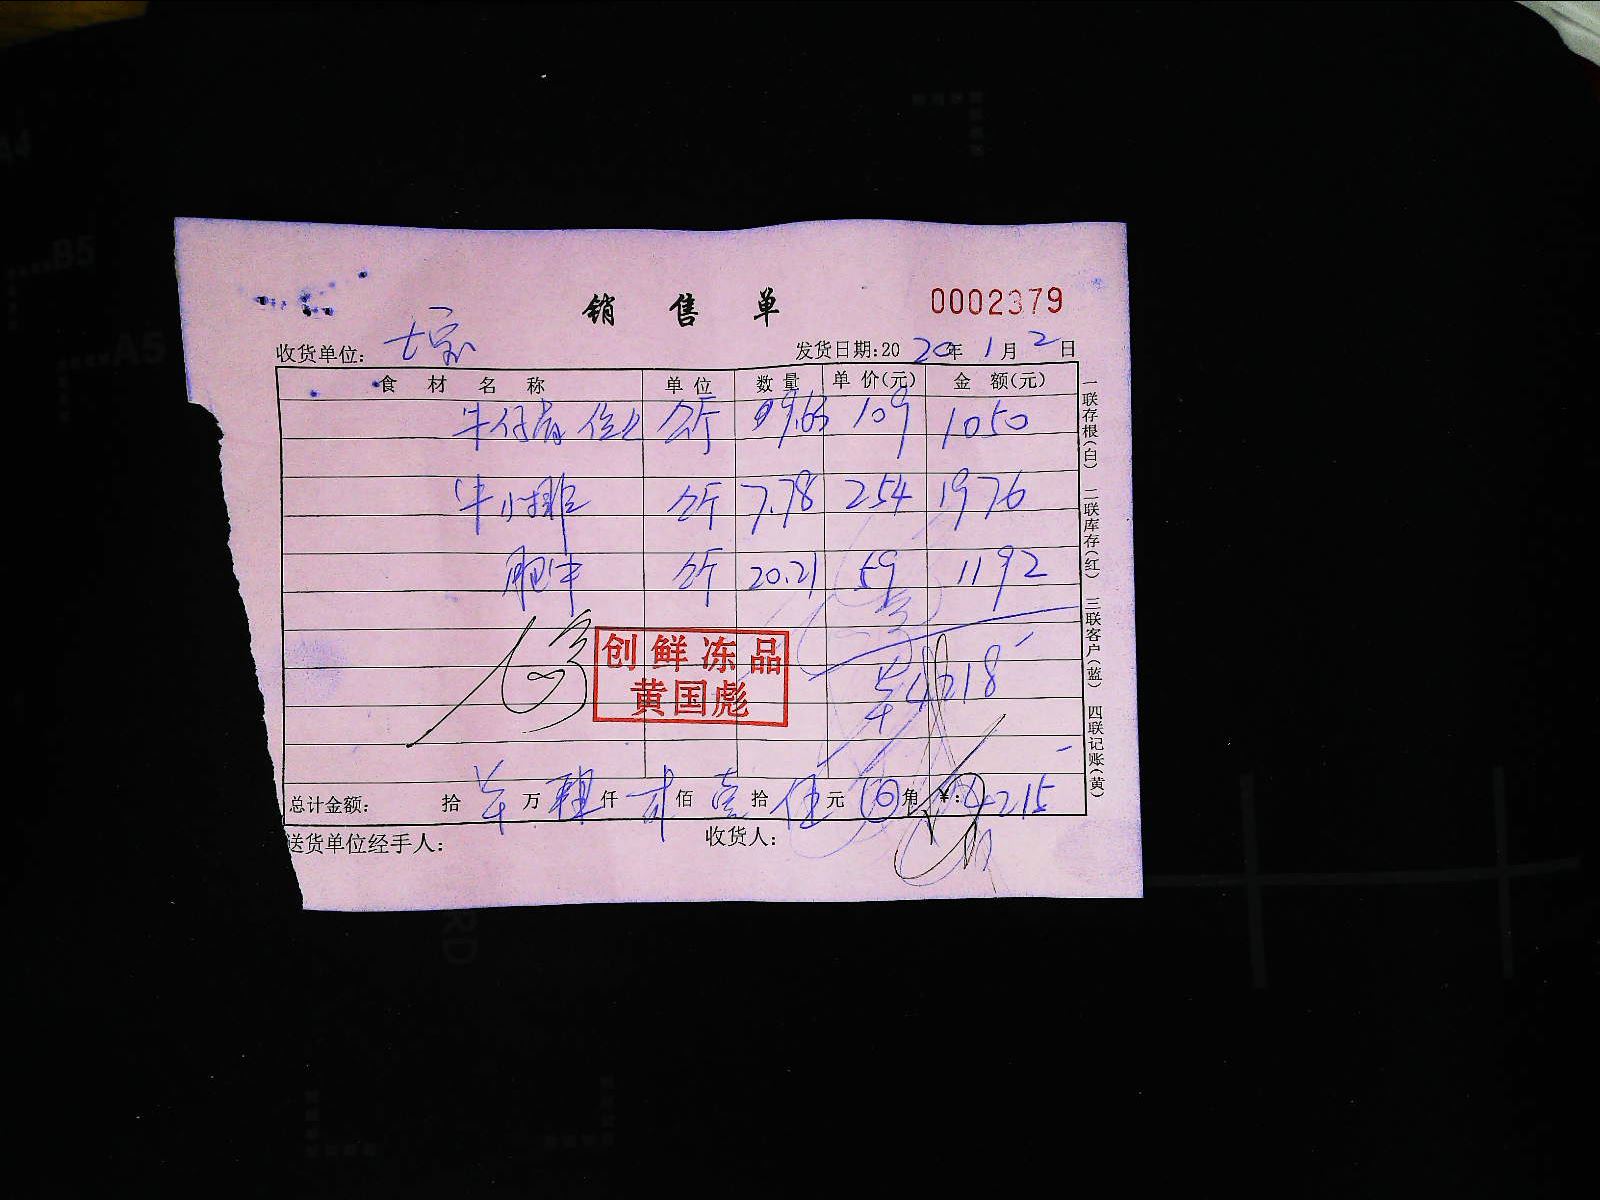 销售单 0002379
收货单位: 七宗 发货日期:2020年1月2日
食材名称 单位 数量 单价(元) 金额(元)
牛仔骨 公斤 9.63 109 1050
牛小排 公斤 7.78 254 1976
肥牛 公斤 20.21 59 1192
创鲜冻品
黄国彪
4218
总计金额: 拾 万 肆仟 贰佰 壹拾 伍元 角 ¥:4215
送货单位经手人: 收货人:
一联存根(白) 二联库存(红) 三联客户(蓝) 四联记账(黄)
A4
B5
A5